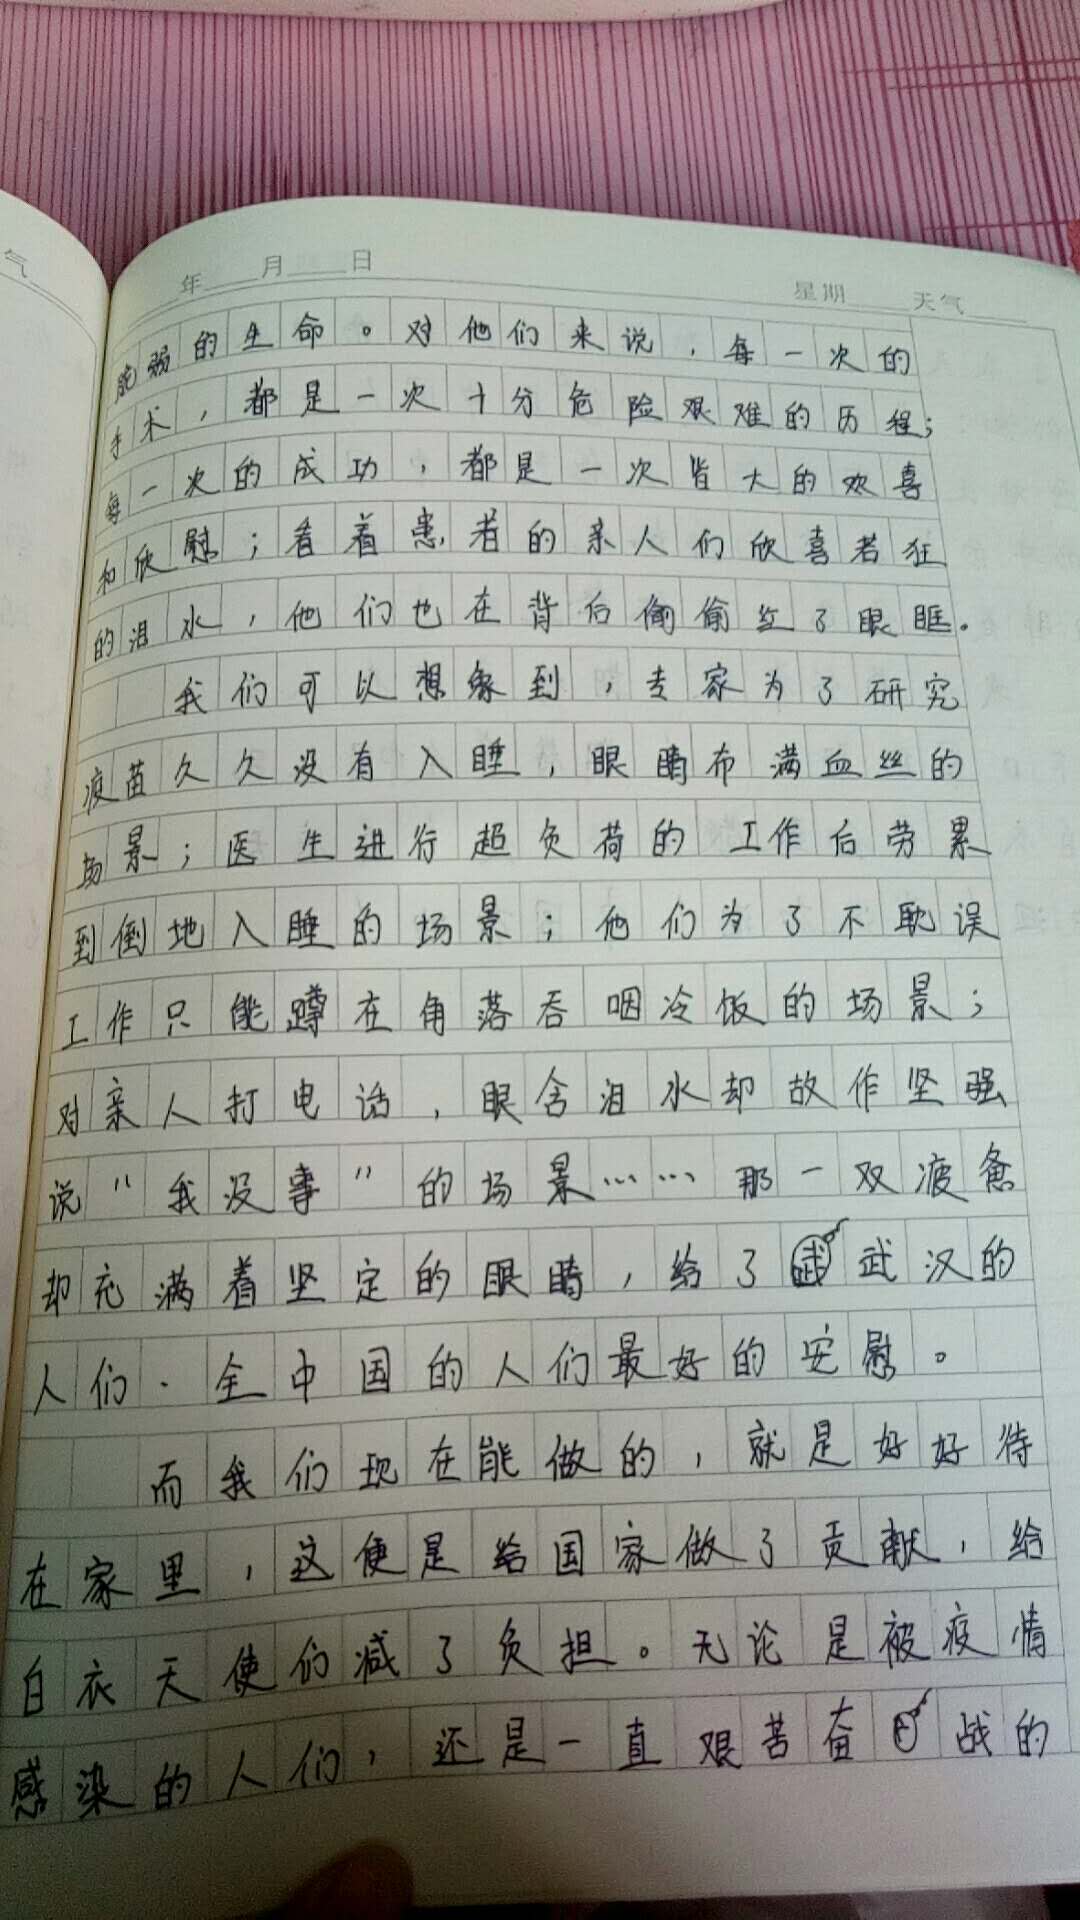 气
年 月 日 星期 天气
脆弱的生命。对他们来说，每一次的
手术，都是一次十分危险艰难的历程；
每一次的成功，都是一次皆大的欢喜
和欣慰；看着患者的亲人们欣喜若狂
的泪水，他们也在背后偷偷红了眼眶。
我们可以想象到，专家为了研究
疫苗久久没有入睡，眼睛布满血丝的
场景；医生进行超负荷的工作后劳累
到倒地入睡的场景；他们为了不耽误
工作只能蹲在角落吞咽冷饭的场景；
对亲人打电话，眼含泪水却故作坚强
说“我没事”的场景……那一双疲惫
却充满着坚定的眼睛，给了武汉的
人们、全中国的人们最好的安慰。
而我们现在能做的，就是好好待
在家里，这便是给国家做了贡献，给
白衣天使们减了负担。无论是被疫情
感染的人们，还是一直艰苦奋战的